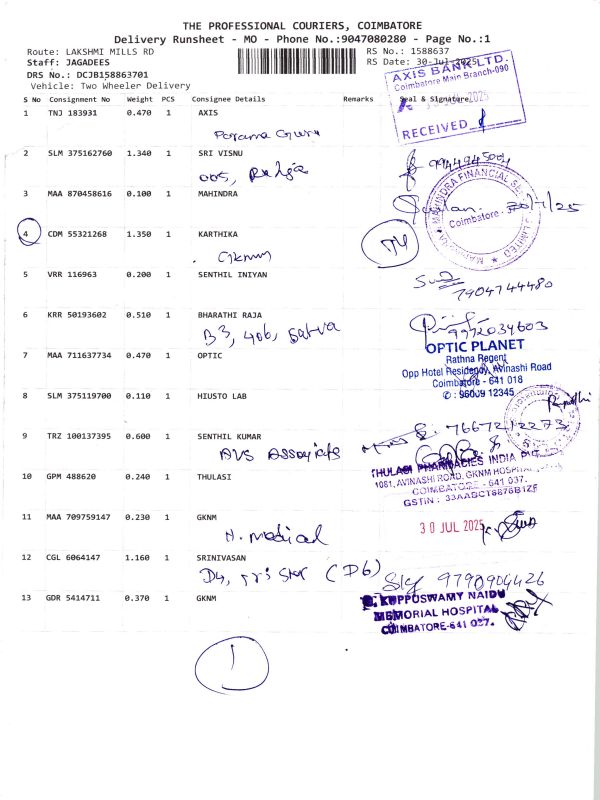 THE PROFESSIONAL COURIERS, COIMBATORE
Delivery Runsheet - MO - Phone No.:9047080280 - Page No.:1
Route: LAKSHMI MILLS RD
RS No.: 1588637
Staff: JAGADEES
RS Date: 30-Jul-2025
DRS No.: DCJB158863701
Vehicle: Two Wheeler Delivery
AXIS BANK LTD.
Coimbatore Main Branch-090
RECEIVED
S No Consignment No Weight PCS Consignee Details Remarks Seal & Signature
1 TNJ 183931 0.470 1 AXIS
2 SLM 375162760 1.340 1 SRI VISNU
005,
9944945004
3 MAA 870458616 0.100 1 MAHINDRA
30/7/25
MAHINDRA FINANCIAL
Coimbatore - 37
LIMITED
4 CDM 55321268 1.350 1 KARTHIKA
Gknm
5 VRR 116963 0.200 1 SENTHIL INIYAN
7904744480
6 KRR 50193602 0.510 1 BHARATHI RAJA
B3, 406, Satva
9972034603
7 MAA 711637734 0.470 1 OPTIC
OPTIC PLANET
Rathna Regent
Opp Hotel Residency, Avinashi Road
Coimbatore - 641 018
✆ : 96009 12345
8 SLM 375119700 0.110 1 HIUSTO LAB
9 TRZ 100137395 0.600 1 SENTHIL KUMAR
AVS
7667212273
10 GPM 488620 0.240 1 THULASI
THULASI PHARMACIES INDIA PVT
1081, AVINASHI ROAD, GKNM HOSPITAL
COIMBATORE - 641 037.
GSTIN : 33AABCT8876B1ZF
11 MAA 709759147 0.230 1 GKNM
H. Medical
30 JUL 2025
12 CGL 6064147 1.160 1 SRINIVASAN
(D6)
9790904426
13 GDR 5414711 0.370 1 GKNM
G. KUPPUSWAMY NAIDU
MEMORIAL HOSPITAL
COIMBATORE-641 037.
1